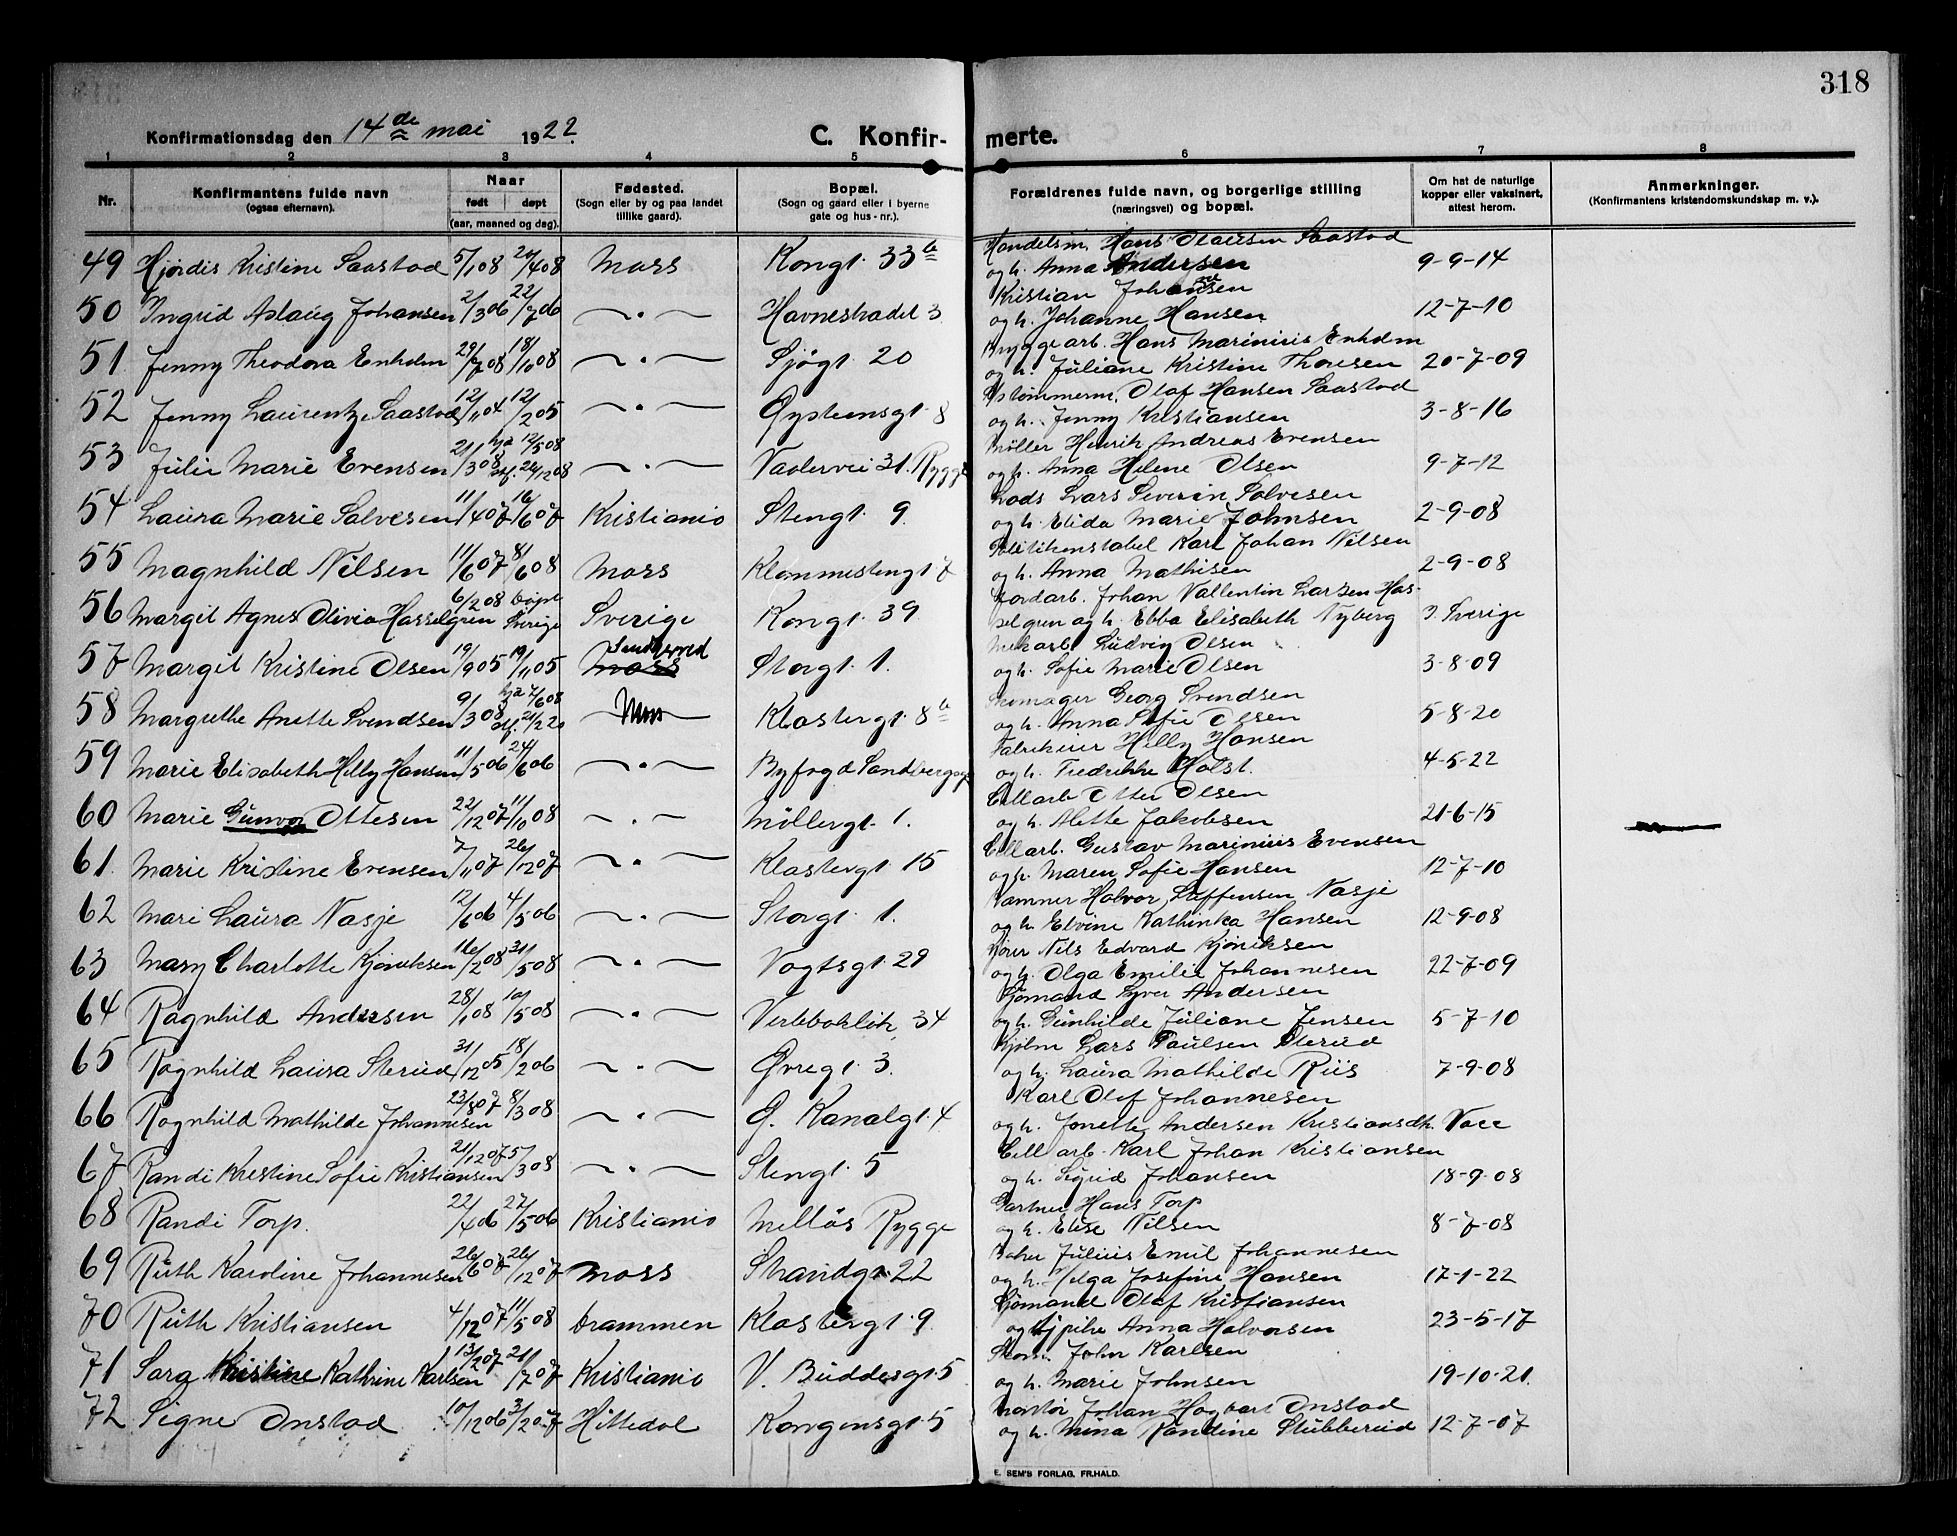 318
Konfirmationsdag den 14de mai 1922.
C. Konfirmerte.
1 2 3 4 5 6 7 8
Nr. Konfirmantens fulde navn (ogsaa efternavn). Naar født døpt (aar, maaned og dag). Fødested. (Sogn eller by og paa landet tillike gaard). Bopæl. (Sogn og gaard eller i byerne gate og hus-nr.). Forældrenes fulde navn, og borgerlige stilling (næringsvei) og bopæl. Om hat de naturlige kopper eller vaksinert, attest herom. Anmerkninger. (Konfirmantens kristendomskundskap m. v.).
49 Hjördis Kristine Saastad 5/1 08 20/4 08 Moss Kongt. 33 b Handelsm. Hans Olausen Saastad
og h. Anna Andersen 9-9-14
50 Ingrid Aslaug Johansen 2/3 06 22/7 06 —„— Havnestradet 3 Kristian Johansen
og h. Johanne Hansen 12-7-10
51 Jenny Theodora Enholm 29/7 08 18/10 08 —„— Sjögt 20 Bryggearb. Hans Marinius Enholm
og h. Juliane Kristine Thoresen 20-7-09
52 Jenny Laurentze Saastad 12/11 04 12/2 05 —„— Øysteinsgt 8 Olaf Hansen Saastad
og h. Jenny Kristiansen 3-8-16
53 Julie Marie Evensen 21/3 08 hja 12/5 08 df. 24/12 08 —„— Vaalervei 31. Rygge Möller Henrik Andreas Evensen
og h. Anna Helene Olsen 9-7-12
54 Laura Marie Salvesen 11/4 07 16/6 07 Kristiania Stengt. 9. Lods Lars Severin Salvesen
og h. Elida Marie Johnsen 2-9-08
55 Magnhild Nilsen 11/6 07 8/6 08 Moss Klommestengt 7 Politikonstabel Karl Johan Nilsen
og h. Anna Mathisen 2-9-08
56 Margit Agnes Olivia Hasselgren 6/2 08 döpt Sverige Sverige Kongt. 39 Jordarb. Johan Vallentin Larsen Has-
selgren og h. Ebba Elisabeth Nyberg 3. Sverige
57 Margit Kristine Olsen 19/9 05 19/11 05 Moss Storgt. 1. Mekarb. Ludvig Olsen
og h. Sofie Marie Olsen 3-8-09
58 Margrethe Anette Svendsen 9/3 08 hja 7/6 08 df. 21/2 20 Moss Klostergt. 8 b Skomager Georg Svendsen
og h. Anna Sofie Olsen 5-8-20
59 Marie Elisabeth Helly Hansen 11/5 06 24/6 06 —„— Byfogd Sandbergsgt Fabrikeier Helly Hansen
og h. Fredrikke Holst. 4-5-22
60 Marie Gunvor Ottesen 22/12 07 11/10 08 —„— Möllergt. 1. Cellarb Otter Olsen
og h. Alette Jakobsen 21-6-15
61. Marie Kristine Evensen 7/11 07 26/12 07 —„— Klostergt 15 Cellarb. Gustav Marinius Evensen
og h. Maren Sofie Hansen 12-7-10
62 Mari Laura Nasje 12/6 06 4/5 06 —„— Storgt. 1. Halvor Steffensen Nasje
og h. Elvine Kathinka Hansen 12-9-08
63 Mary Charlotte Kjöniksen 16/2 08 31/5 08 —„— Vogtsgt. 29 Nils Edvard Kjöniksen
og h. Olga Emilie Johannesen 22-7-09
64 Ragnhild Andersen 28/1 08 10/5 08 —„— Verlebakkk 34 Sjömand Syver Andersen
og h. Gunhilde Juliane Jensen 5-7-10
65 Ragnhild Laura Sterud 31/12 05 18/2 06 —„— Øvregt 3. Lars Paulsen Sterud
og h. Laura Mathilde Riis 7-9-08
66 Ragnhild Mathilde Johannesen 23/8 07 8/3 08 —„— G. Kanalgt. 4 Karl Olaf Johannesen
og h. Jonette Andersen Kristiansdh. Vacc
67 Randi Kristine Sofie Kristiansen 21/12 07 5/3 08 —„— Stengt. 5 Cell arb. Karl Johan Kristiansen
og h. Sigrid Johansen 18-9-08
68 Randi Torp. 22/4 06 27/5 06 Kristiania Mellös Rygge Gartner Hans Torp
og h. Elise Nilsen 8-7-08
69 Ruth Karoline Johannesen 26/6 07 26/12 07 Moss Strandgt 22 Baker Julius Emil Johannesen
og h. Helga Josefine Hansen 17-1-22
70 Ruth Kristiansen 4/12 07 11/5 08 Drammen Klostergt. 9. Sjömand Olaf Kristiansen
og pike Anna Halvorsen 23-5-17
71 Sara Kristine Kathrine Karlsen 13/2 07 21/7 07 Kristiania V. Buddesgt. 5 John Karlsen
og h. Marie Johnsen 19-10-21.
72 Signe Onstad 10/12 06 3/2 07 Hittedal Kongensgt. 5 Johan Hagbart Onstad
og h. Mina Randine Stubberud 12-7-07
E. SEM'S FORLAG, FR.HALD.